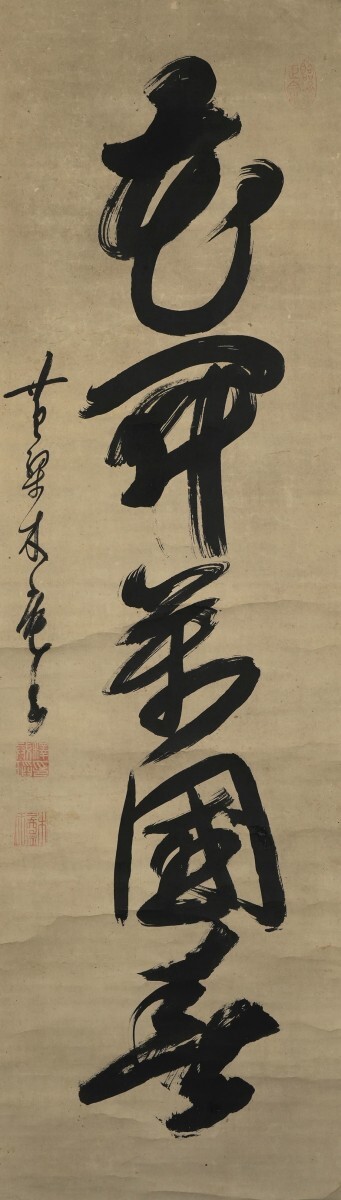 花開萬國春
黄檗木菴書